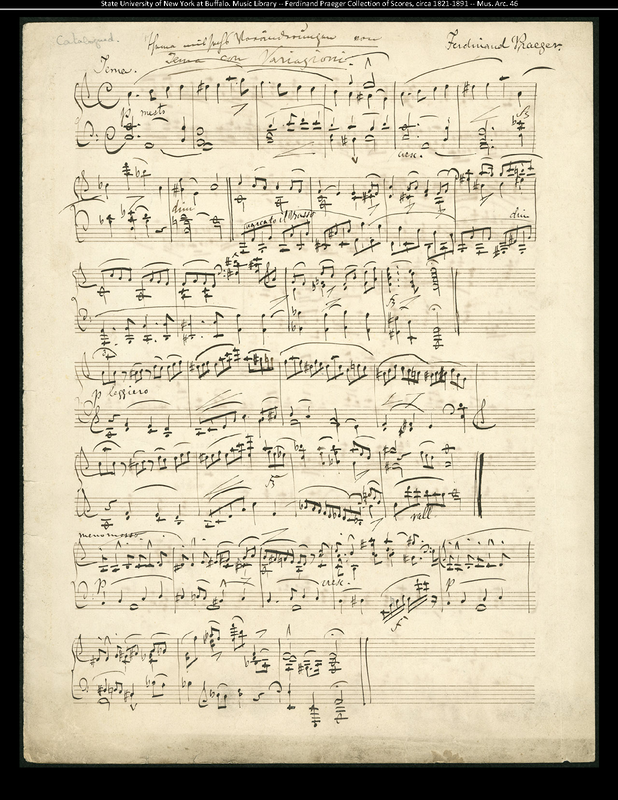 State University of New York at Buffalo. Music Library -- Ferdinand Praeger Collection of Scores, circa 1821-1891 -- Mus. Arc. 46
Catalogued. Thema mit sechs Veränderungen von Ferdinand Praeger.
Tema con Variazioni.
Tema.
p mesto
cresc.
dim
marcato il Basso
dim
p leggiero
rall
meno mosso
p cresc. p